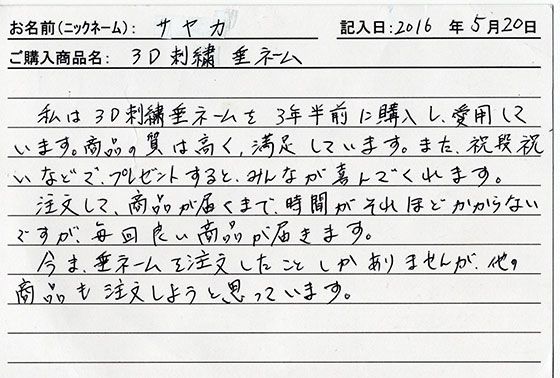 お名前(ニックネーム): サヤカ 記入日:2016 年5月20日
ご購入商品名: 3D刺繍 垂ネーム
私は3D刺繍垂ネームを3年半前に購入し、愛用して
います。商品の質は高く、満足しています。また、祝段祝
いなどで、プレゼントすると、みんなが喜んでくれます。
注文して、商品が届くまで、時間がそれほどかからない
ですが、毎回良い商品が届きます。
今ま、垂ネームを注文したことしかありませんが、他の
商品も注文しようと思っています。